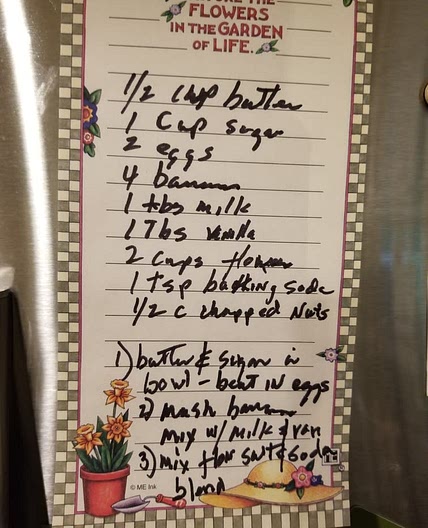 THE
FLOWERS
IN THE GARDEN
OF LIFE.
1/2 cup butter
1 Cup sugar
2 eggs
4 banana
1 tbs milk
1 Tbs vanilla
2 cups flour
1 tsp backing soda
1/2 c chopped Nuts
1) butter & sugar in
bowl - beat in eggs
2) mash banana
mix w/ milk & van
3) mix flour salt & soda
blend
© ME Ink